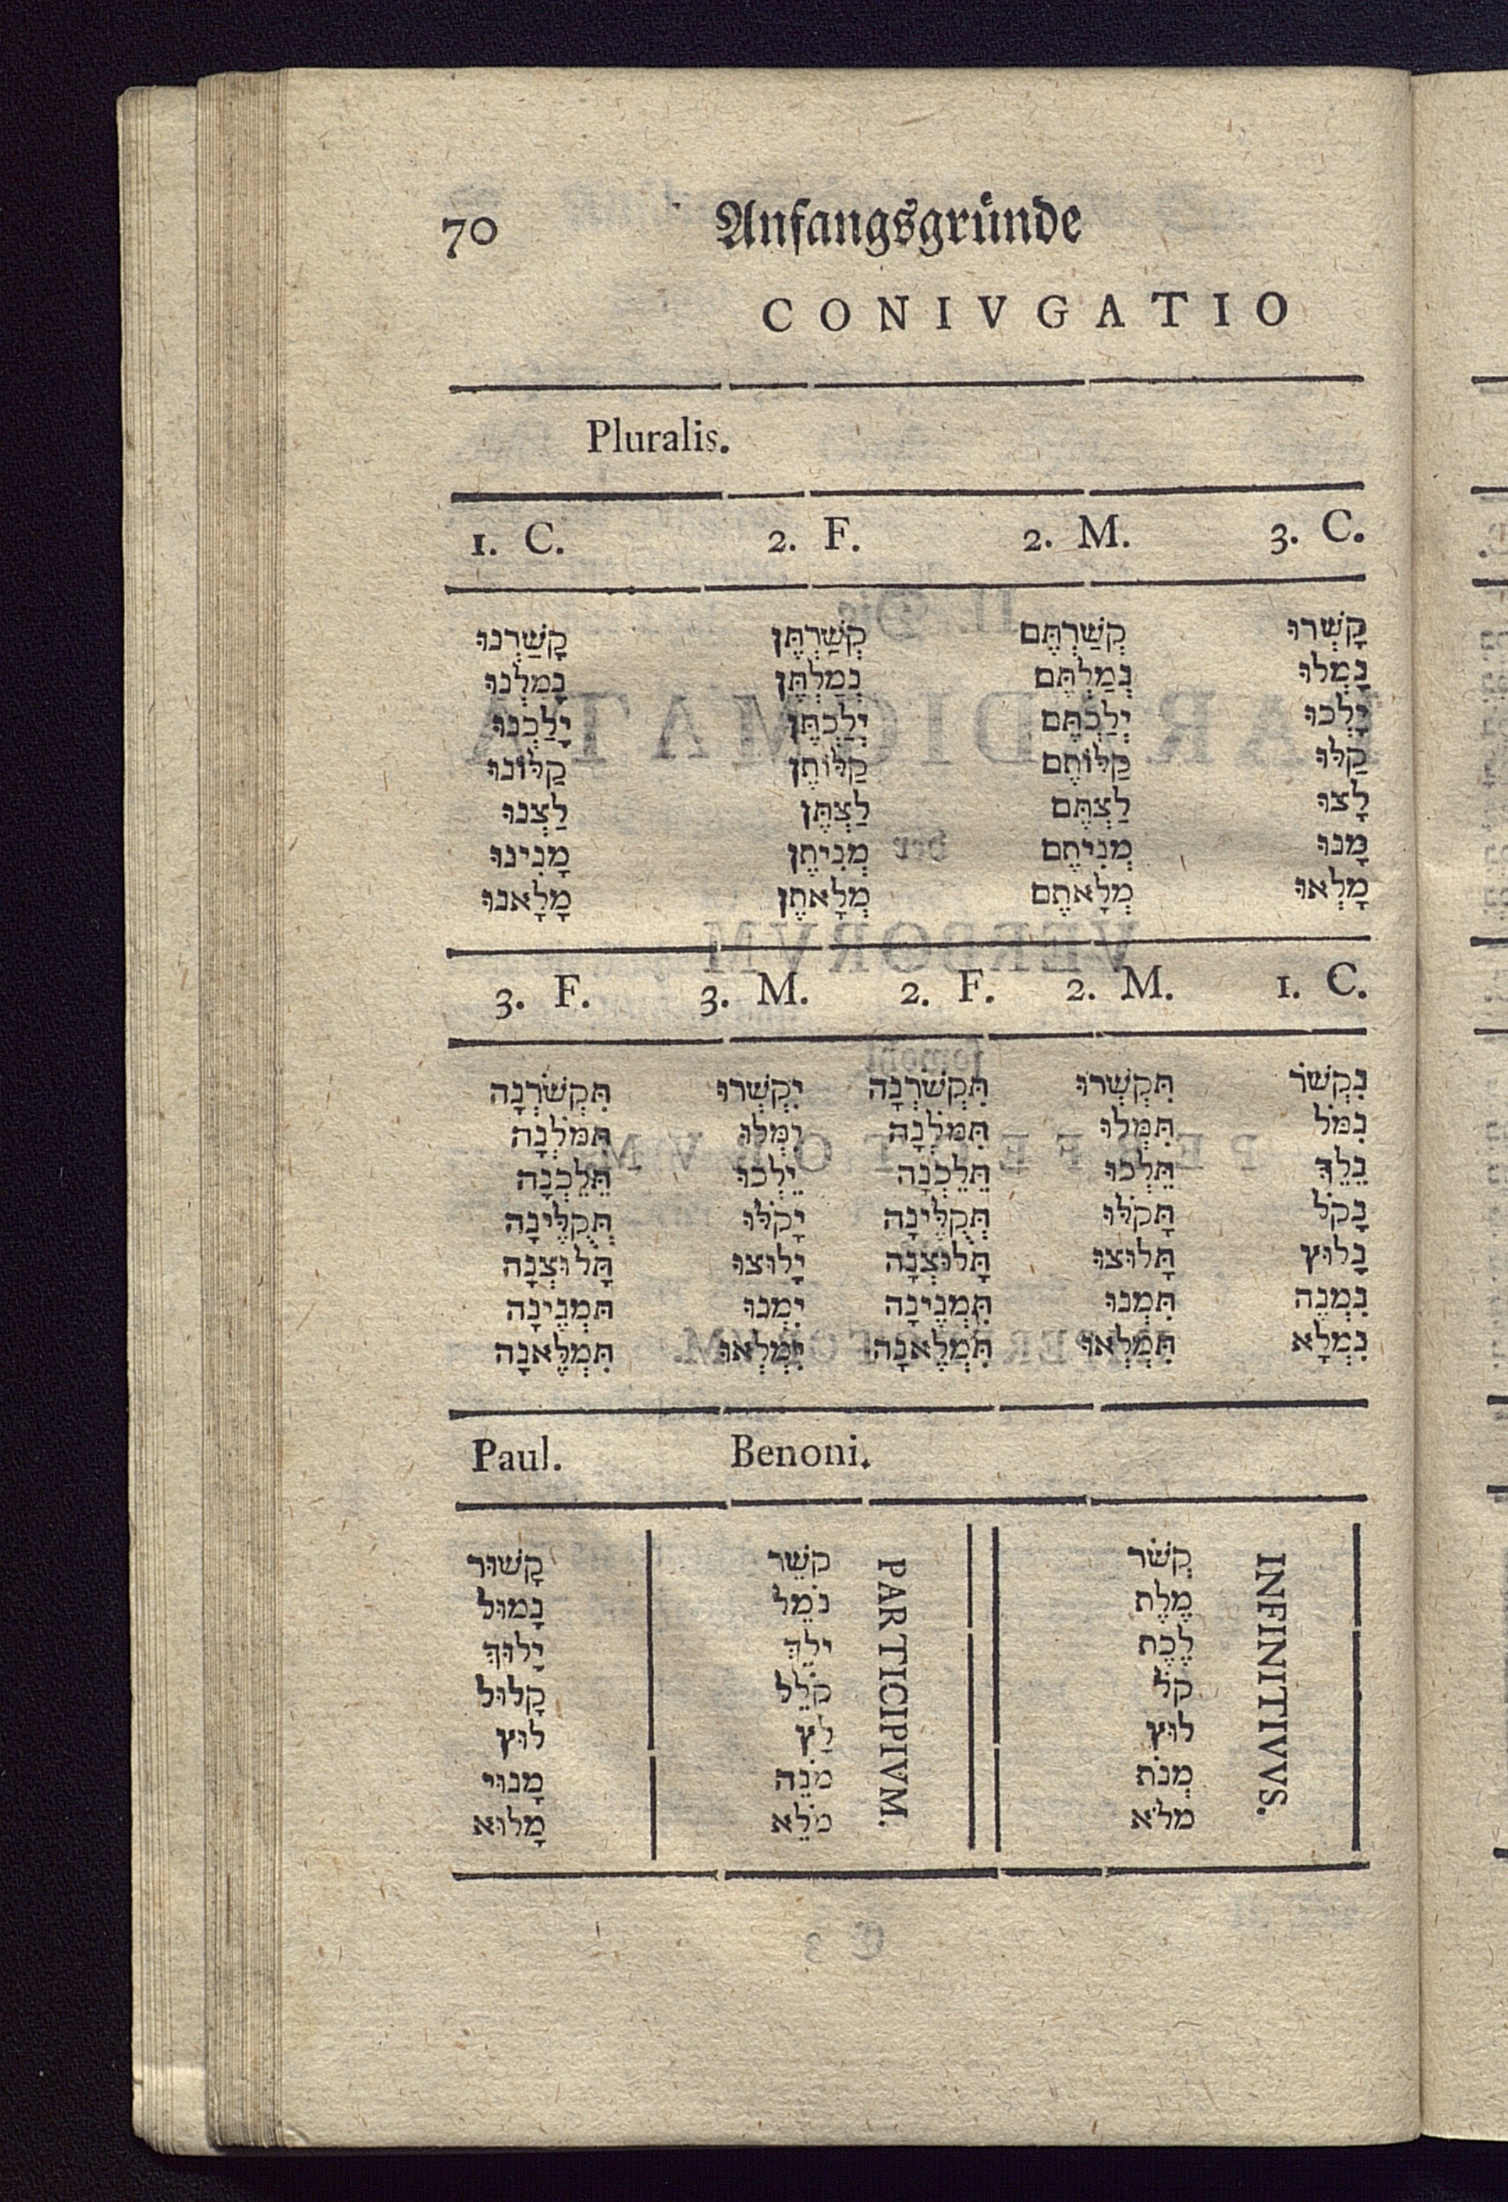 70 Anfangsgründe
CONIVGATIO
Pluralis.
1. C. 2. F. 2. M. 3. C.
קָשַׁרְנוּ קְשַׁרְתֶּן קְשַׁרְתֶּם קָשְׁרוּ
נָמַלְנוּ נְמַלְתֶּן נְמַלְתֶּם נָמְלוּ
יָלַכְנוּ יְלַכְתֶּן יְלַכְתֶּם יָלְכוּ
קַלּוֹנוּ קַלּוֹתֶן קַלּוֹתֶם קַלּוּ
לַצְנוּ לַצְתֶּן לַצְתֶּם לָצוּ
מָנִינוּ מְנִיתֶן מְנִיתֶם מָנוּ
מָלָאנוּ מְלָאתֶן מְלָאתֶם מָלְאוּ
3. F. 3. M. 2. F. 2. M. 1. C.
תִּקְשֹׁרְנָה יִקְשְׁרוּ תִּקְשֹׁרְנָה תִּקְשְׁרוּ נִקְשֹׁר
תִּמֹּלְנָה יִמְּלוּ תִּמֹּלְנָה תִּמְּלוּ נִמֹּל
תֵּלֵכְנָה יֵלְכוּ תֵּלֵכְנָה תֵּלְכוּ נֵלֵךְ
תְּקֻלֶּינָה יָקֹלּוּ תְּקֻלֶּינָה תָּקֹלּוּ נָקֹל
תָּלוּצְנָה יָלוּצוּ תָּלוּצְנָה תָּלוּצוּ נָלוּץ
תִּמְנֶינָה יִמְנוּ תִּמְנֶינָה תִּמְנוּ נִמְנֶה
תִּמְלֶאנָה יִמְלְאוּ תִּמְלֶאנָה תִּמְלְאוּ נִמְלָא
Paul. Benoni.
PARTICIPIVM. INFINITIVVS.
קָשׁוּר קֹשֵׁר קְשֹׁר
נָמוּל נֹמֵל מֶלֶת
יָלוּךְ יֹלֵךְ לֶכֶת
קָלוּל קֹלֵל קֹל
לוּץ לָץ לוּץ
מָנוּי מֹנֶה מְנֹת
מָלוּא מֹלֵא מְלֹא